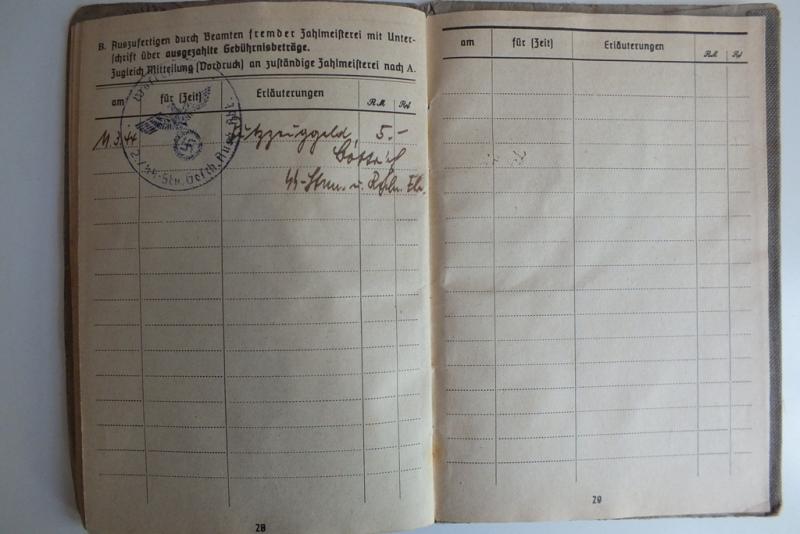 B. Auszufertigen durch Beamten fremder Zahlmeisterei mit Unter-
schrift über ausgezahlte Gebührnisbeträge.
Zugleich Mitteilung (Vordruck) an zuständige Zahlmeisterei nach A.
am für (Zeit) Erläuterungen R.M. Rpf
11.3.44 Putzzeuggeld, 5.-
SS-Strm. u.
28
am für (Zeit) Erläuterungen R.M. Rpf
29